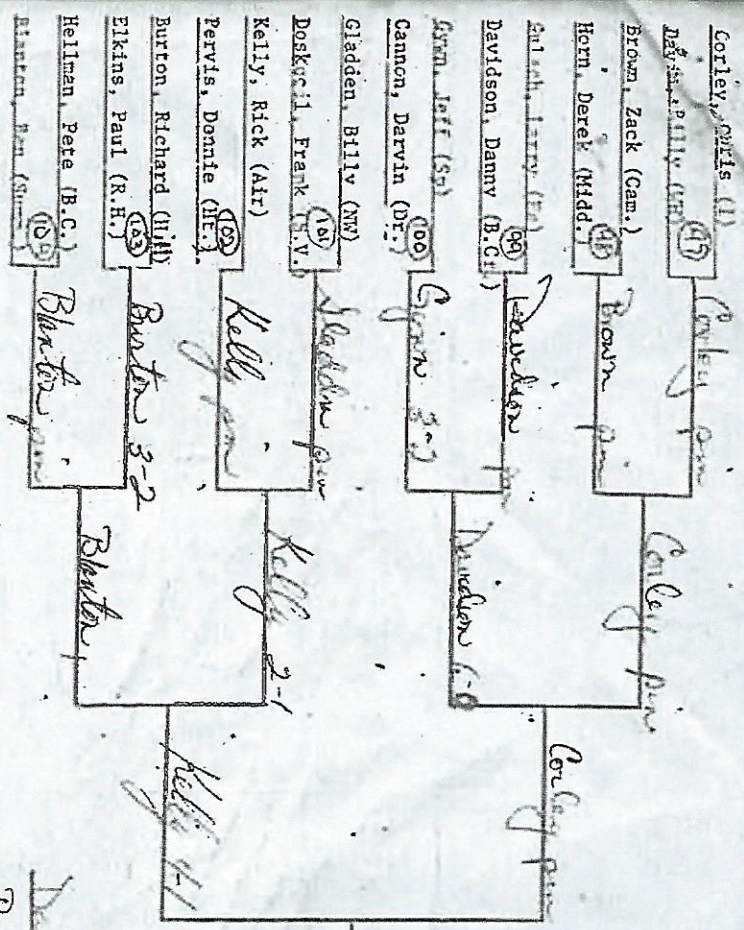 Corley, (I)
(97)
Brown, Zack (Cam.)
Horn, Derek (Midd.) (98)
Larry
Davidson, Danny (B.C.) (99)
Gynn, Jeff (Sp)
Cannon, Darvin (Dr.) (100)
Gladden, Billy (NW)
Doskocil, Frank (S.V.) (101)
Kelly, Rick (Air)
Pervis, Donnie (Ht.) (102)
Burton, Richard
Elkins, Paul (R.H.) (103)
Hellman, Pete (B.C.)
Blanton, (104)
Corley pin
Brown pin
Davidson pin
Gynn
Gladden pin
Kelly pin
Burton 3-2
Blanton pin
Corley pin
Davidson 6-0
Kelly 2-1
Blanton
Corley pin
Kelly 4-1